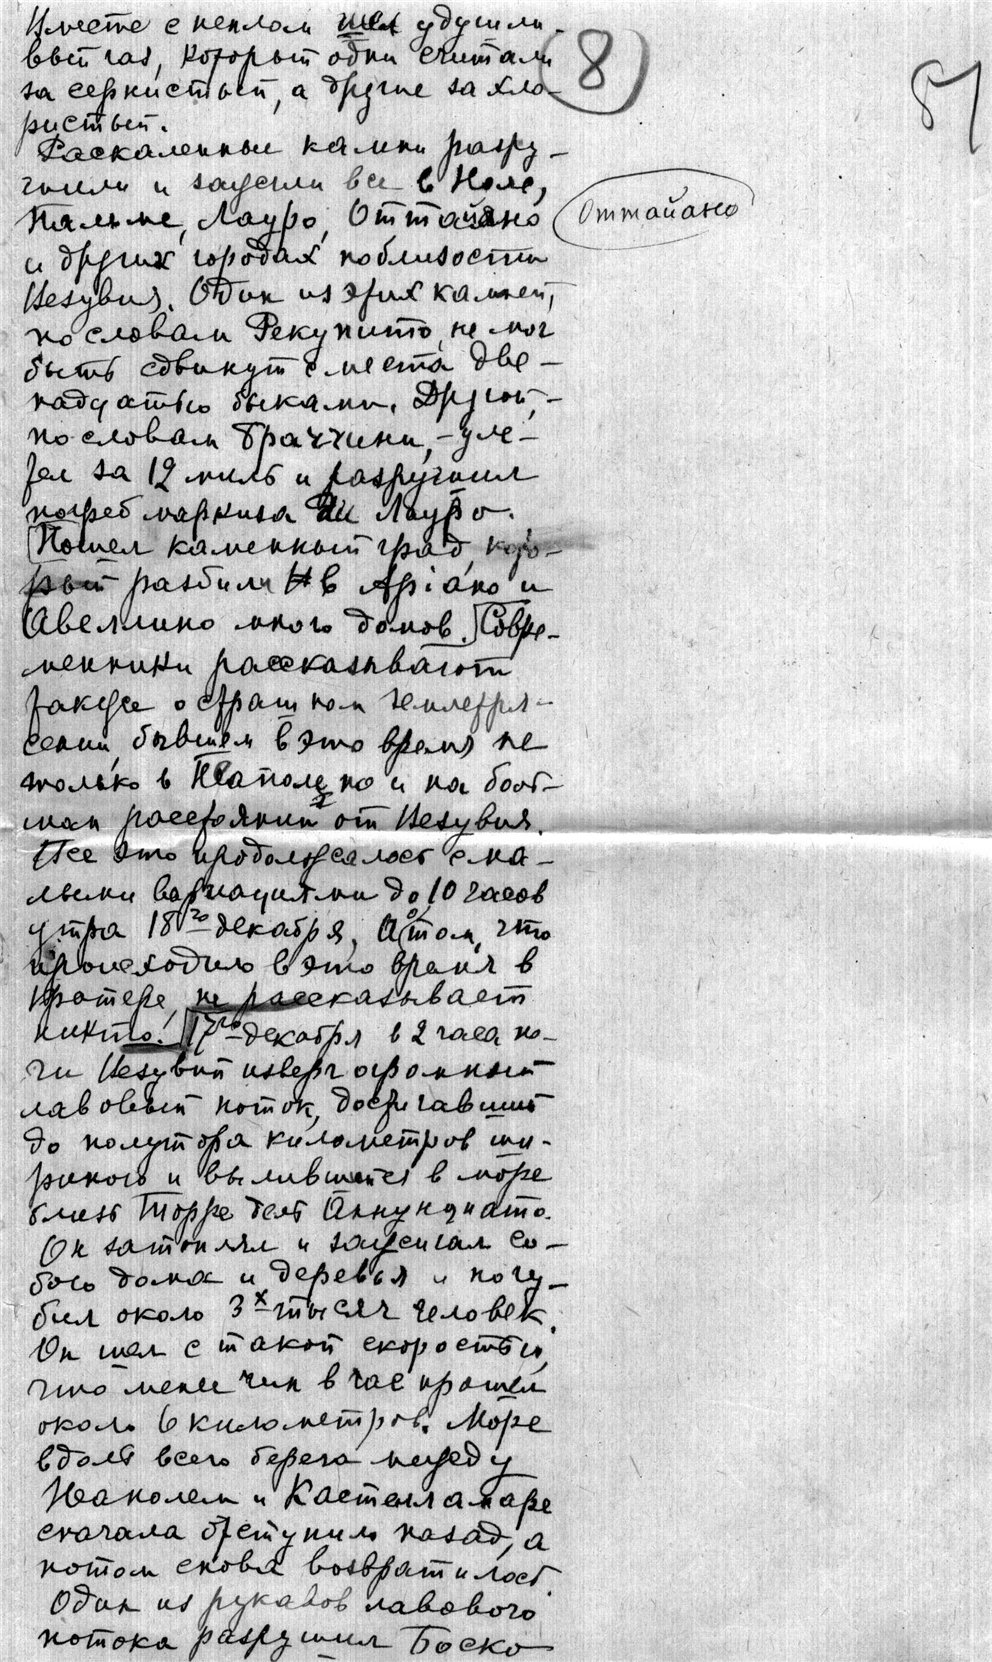 Вместе с пеплом шел удушли-
вый газ, который одни считали
за сернистый, а другие за хло-
ристый.
8
51
Раскаленные камни разру-
шили и зажгли все в Ноле,
Пальме, Лауро, Оттайано
Оттайано
и других городах поблизости
Везувия. Один из этих камней,
по словам Рекупито, не мог
быть сдвинут с места две-
надцатью быками. Другой, -
по словам Браччини, - уле-
тел за 12 миль и разрушил
погреб маркиза ди Лауро.
[Пошел каменный град, кото-
рый разбил в Ариано и
Авеллино много домов.] Совре-
менники рассказывают
также о страшном землетря-
сении, бывшем в это время не
только в Неаполе, но и на боль-
шом расстоянии от Везувия.
Все это продолжалось с ма-
лыми вариациями до 10 часов
утра 18го декабря. О том, что
происходило в это время в
кратере, не рассказывает
никто. [17го декабря в 2 часа но-
чи Везувий изверг огромный
лавовый поток, достигавший
до полутора километров ши-
риною и вылившийся в море
близ Торре дель Аннунциато.
Он затоплял и зажигал со-
бою дома и деревья и погу-
бил около 3х тысяч человек.
Он шел с такой скоростью,
что менее чем в час прошел
около 6 километров. Море
вдоль всего берега между
Неаполем и Кастелламаре
сначала отступило назад, а
потом снова возвратилось.
Один из рукавов лавового
потока разрушил Боско